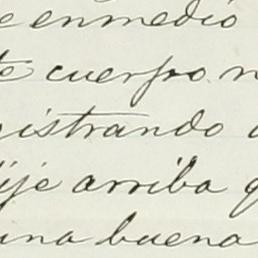 e enmedio
te cuerpo n
gistrando
dije arriba q
una buena